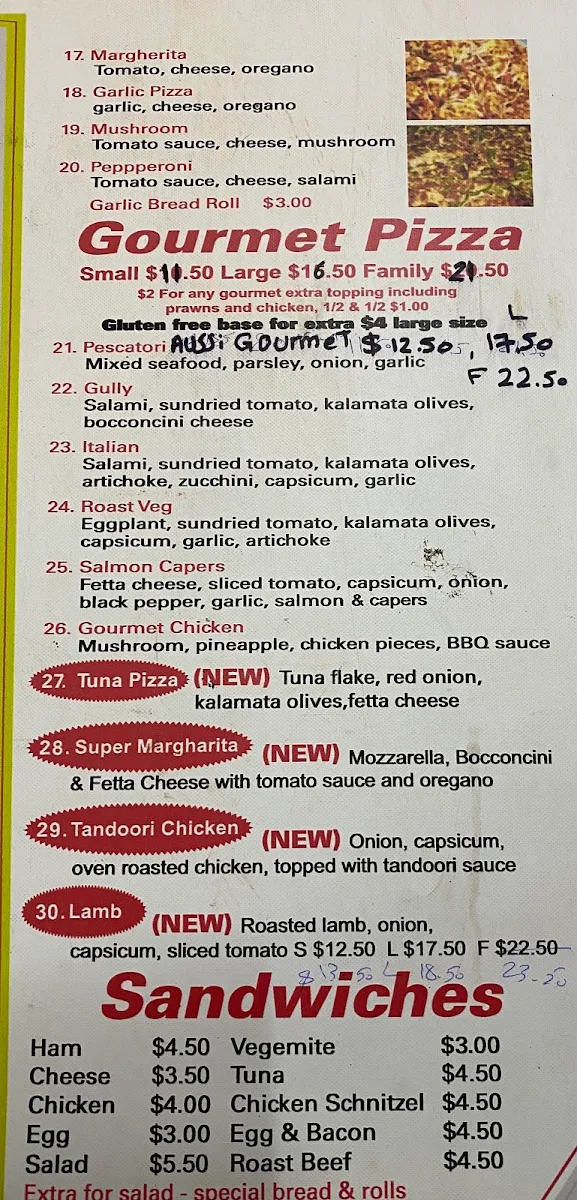 17. Margherita
Tomato, cheese, oregano
18. Garlic Pizza
garlic, cheese, oregano
19. Mushroom
Tomato sauce, cheese, mushroom
20. Peppperoni
Tomato sauce, cheese, salami
Garlic Bread Roll $3.00
Gourmet Pizza
Small $11.50 Large $16.50 Family $21.50
$2 For any gourmet extra topping including
prawns and chicken, 1/2 & 1/2 $1.00
Gluten free base for extra $4 large size L
21. Pescatori AUSSi GOurmeT $12.50, 17.50
Mixed seafood, parsley, onion, garlic F 22.50
22. Gully
Salami, sundried tomato, kalamata olives,
bocconcini cheese
23. Italian
Salami, sundried tomato, kalamata olives,
artichoke, zucchini, capsicum, garlic
24. Roast Veg
Eggplant, sundried tomato, kalamata olives,
capsicum, garlic, artichoke
25. Salmon Capers
Fetta cheese, sliced tomato, capsicum, onion,
black pepper, garlic, salmon & capers
26. Gourmet Chicken
Mushroom, pineapple, chicken pieces, BBQ sauce
27. Tuna Pizza (NEW) Tuna flake, red onion,
kalamata olives,fetta cheese
28. Super Margharita (NEW) Mozzarella, Bocconcini
& Fetta Cheese with tomato sauce and oregano
29. Tandoori Chicken (NEW) Onion, capsicum,
oven roasted chicken, topped with tandoori sauce
30. Lamb (NEW) Roasted lamb, onion,
capsicum, sliced tomato S $12.50 L $17.50 F $22.50
$13.50 L 18.50 23-50
Sandwiches
Ham $4.50 Vegemite $3.00
Cheese $3.50 Tuna $4.50
Chicken $4.00 Chicken Schnitzel $4.50
Egg $3.00 Egg & Bacon $4.50
Salad $5.50 Roast Beef $4.50
Extra for salad - special bread & rolls